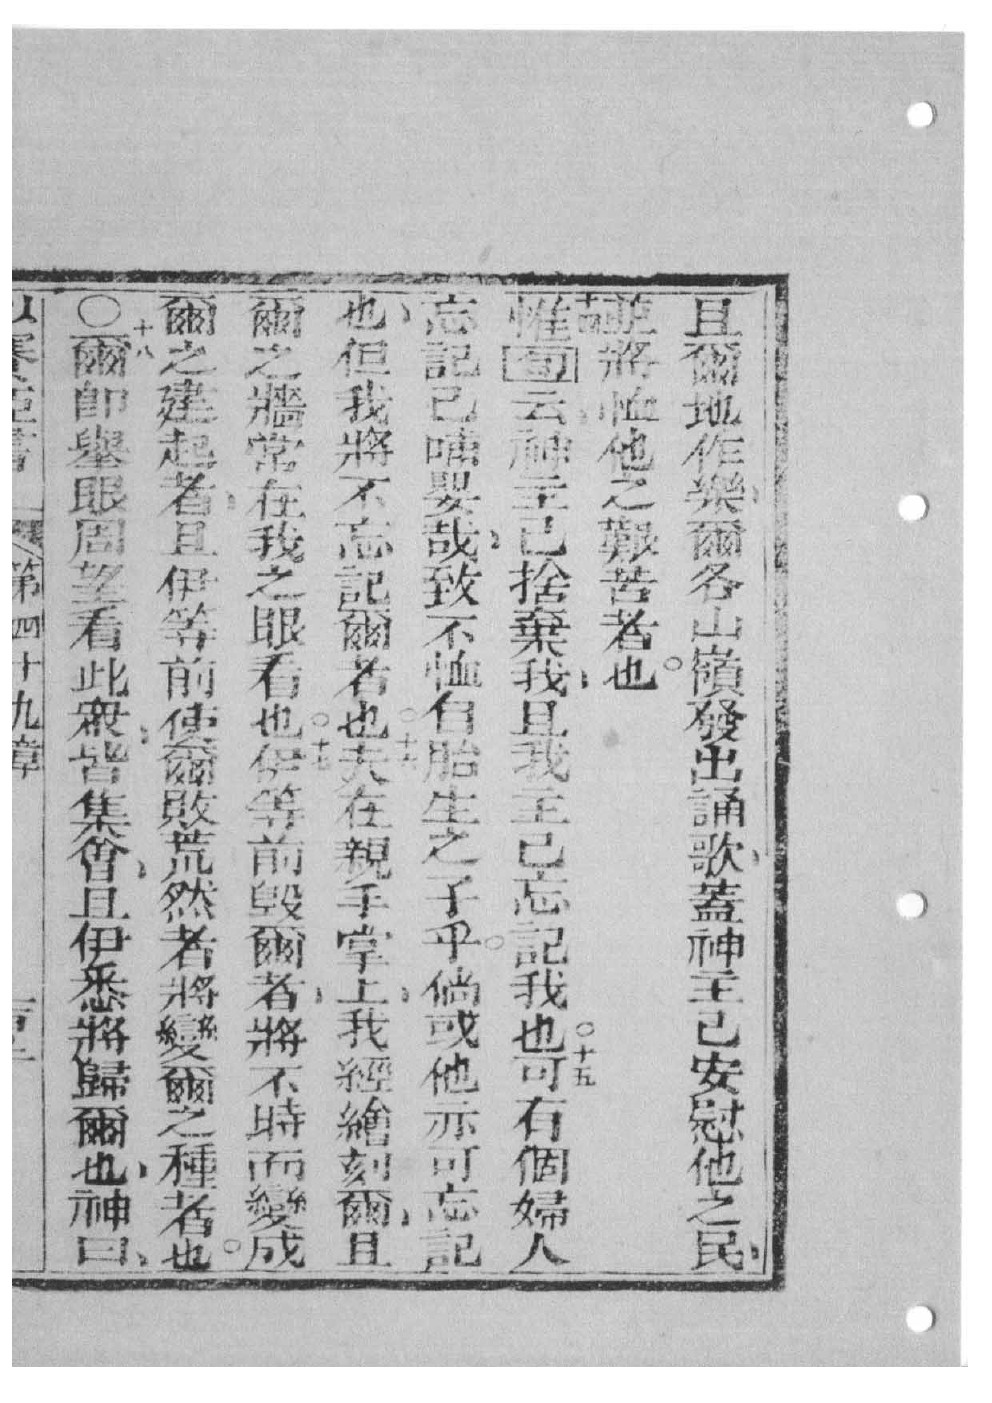 且爾地作樂爾各山嶺發出誦歌蓋神主已安慰他之民
並將恤他之艱苦者也
惟云神主已捨棄我且我主已忘記我也○十五可有個婦人
忘記己哺嬰哉致不恤自胎生之子乎倘或他亦可忘記
也但我將不忘記爾者也○十六夫在親手掌上我經繪刻爾且
爾之牆常在我之眼看也○十七伊等前毀爾者將不時而變成
爾之建起者且伊等前使爾敗荒然者將變爾之種者也
○十八爾即舉眼周望看此眾皆集會且伊悉將歸爾也神曰
以賽亞書 第四十九章